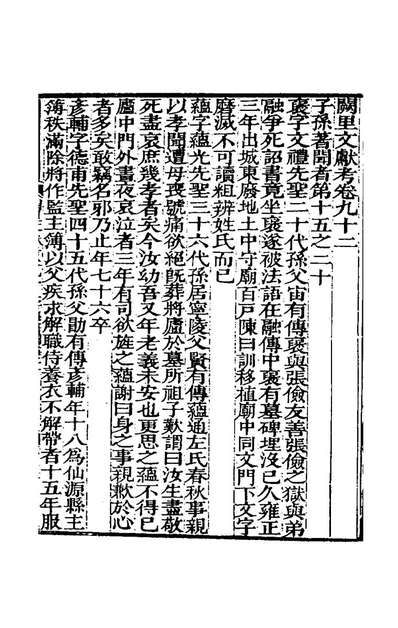 闕里文獻考卷九十二
子孫著聞者第十五之二十
褒字文禮先聖二十代孫父宙有傳褒與張儉友善張儉之獄與弟
融爭死詔書竟坐褒遂被法語在融傳中褒有墓碑埋沒已久雍正
三年出城東廢地土中守廟百戸陳曰訓移植廟中同文門下文字
磨滅不可讀組辨姓氏而已
蘊字蘊光先聖三十六代孫居寧陵父賢有傳蘊通左氏春秋事親
以孝聞遭母喪號痛欲絕旣葬將廬於墓所祖子歎謂曰汝生盡敬
死盡哀庶幾孝者矣今汝幼吾又年老義未安也更思之蘊不得已
廬中門外晝夜哀泣者三年有司欲旌之蘊謝曰身之事親歉於心
者多矣敢竊名邪乃止年七十六卒
彥輔字德甫先聖四十五代孫父勖有傳彥輔年十八爲仙源縣主
簿秩滿除將作監主簿以父疾求解職侍養衣不解帶者十五年服